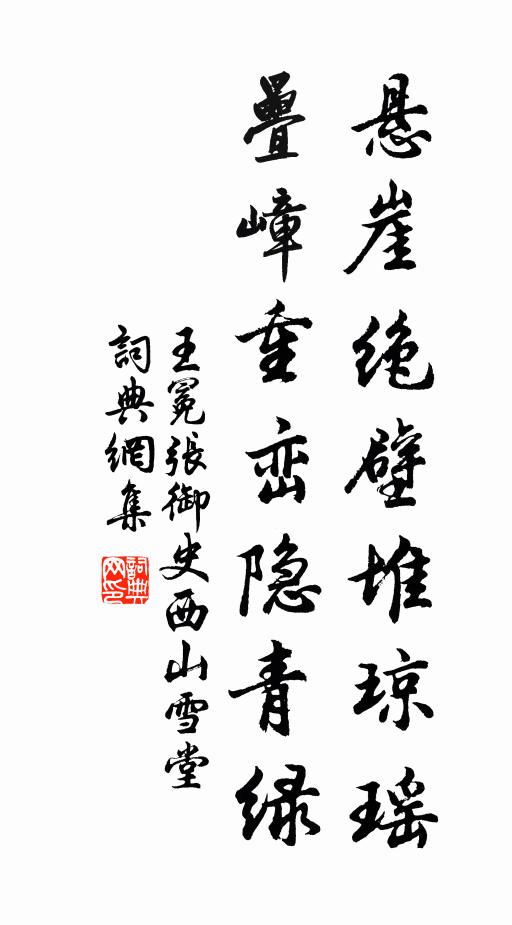 悬崖绝壁堆琼瑶
叠嶂重峦隐青绿
王冕張御史西山雪堂
詞典網集
詞典网印